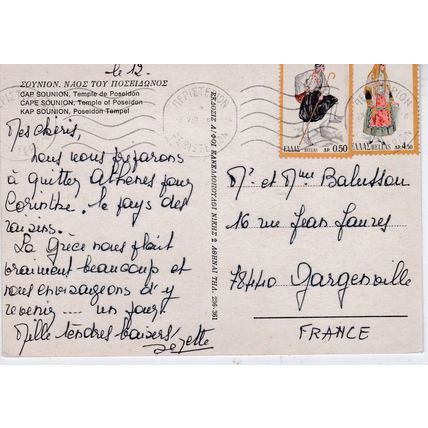 le 12.
ΣΟΥΝΙΟΝ. ΝΑΟΣ ΤΟΥ ΠΟΣΕΙΔΩΝΟΣ
CAP SOUNION, Temple de Poseidon
CAPE SOUNION, Temple of Poseidon
KAP SOUNION, Poseidon Tempel
Mes chéris,
nous nous préparons
à quitter Athènes pour
Corinthe. le pays des
raisins.
La Grèce nous plait
vraiment beaucoup et
nous envisageons d'y
revenir .... un jour.
Mille tendres baisers
ΠΕΡΙΣΤΕΡΙΟΝ
ΕΛΛΑΣ HELLAS ΔΡ. 0.50
ΕΛΛΑΣ HELLAS ΔΡ. 4.50
Mr et Mme Balusson
16 rue Jean Jaures
78440 Gargenville
FRANCE